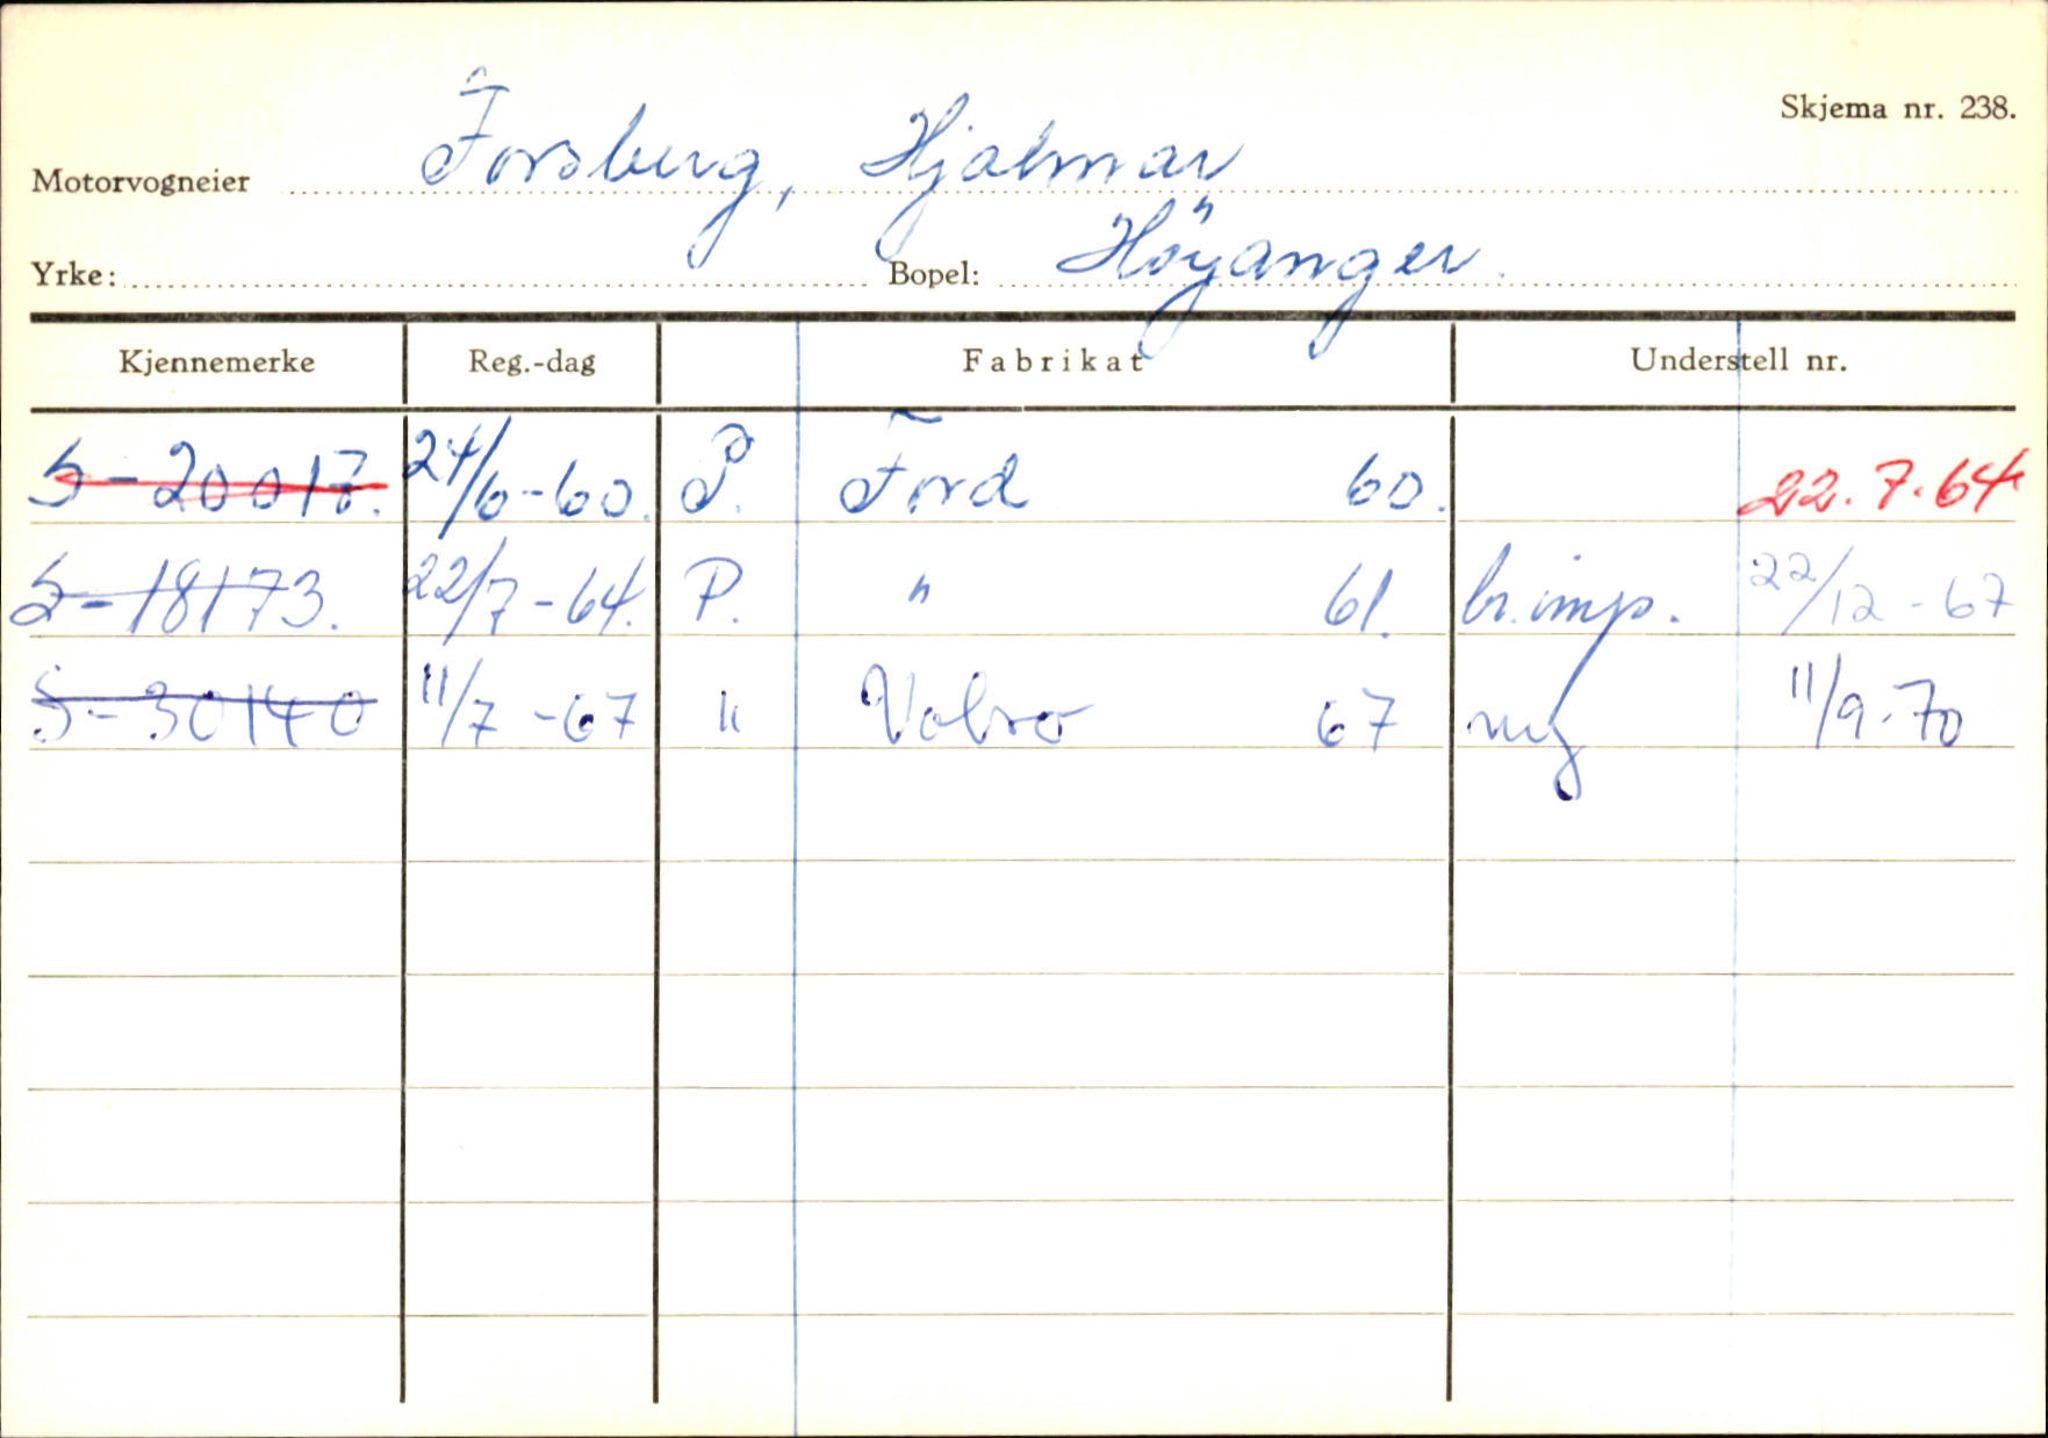 Skjema nr. 238.
Motorvogneier Forsberg, Hjalmar
Yrke: Bopel: Höyanger.
Kjennemerke Reg.-dag Fabrikat Understell nr.
S-20017. 24/6-60. P. Ford 60. 22.7.64
S-18173. 22/7-64. P. " 61. br.imp. 22/12-67
S-30140 11/7-67 " Volvo 67 ny 11/9-70